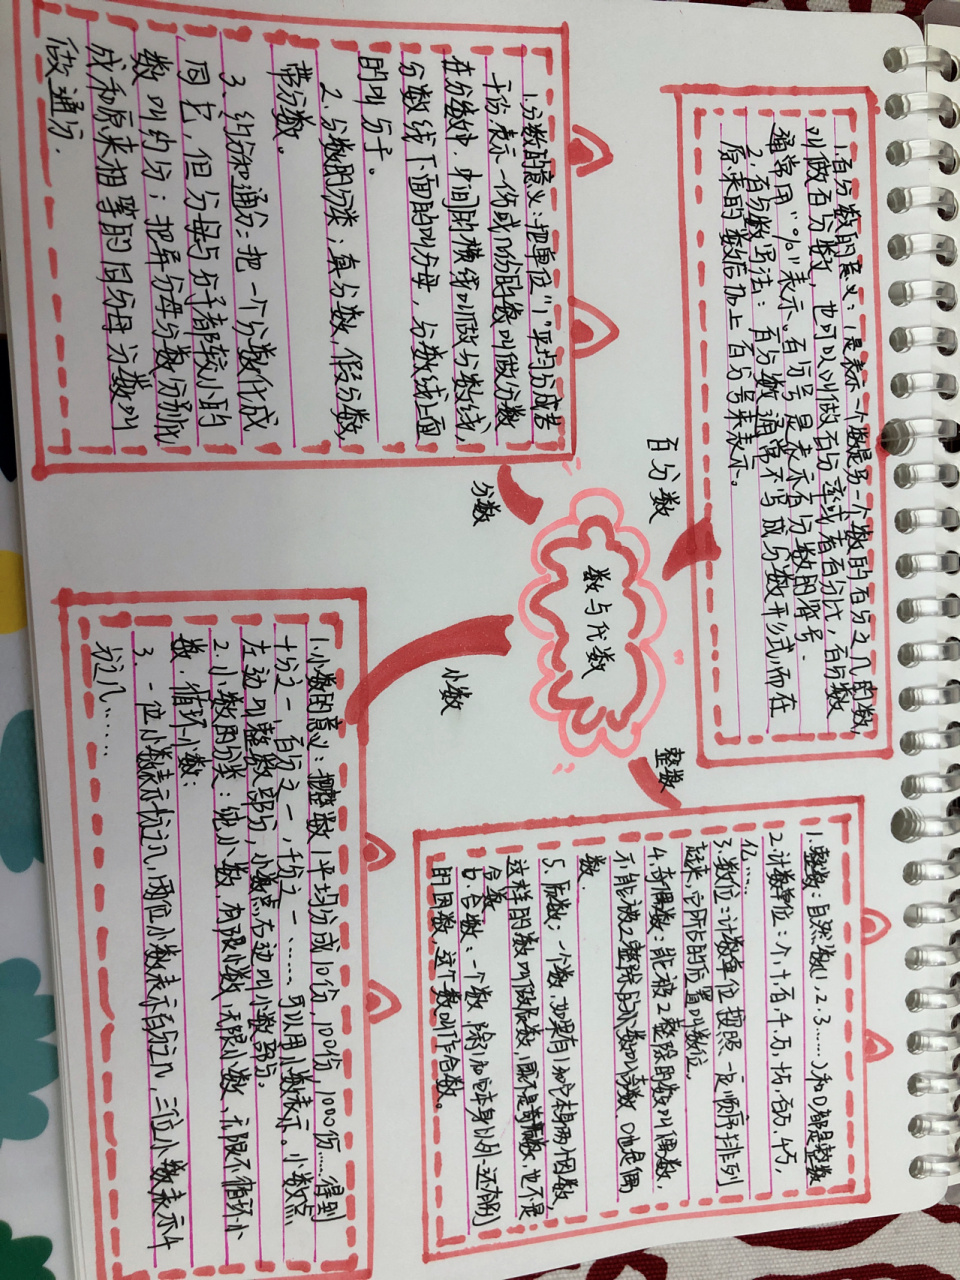 数与代数
百分数
1.百分数的意义:1是表示一个数是另一个数的百分之几的数,
叫做百分数,也可以叫做百分率或者百分比,百分数
通常用“%”表示。百分号是表示百分数的符号.
2.百分数写法:百分数通常不写成分数开形式,而在
原来的数后加上百分号来表示。
分数
1.分数的意义:把单位“1”平均分成若
干份表示一份或几份的数叫做分数
在分数中.中间的横线叫做分数线,
分数线下面的叫分母,分数线上面
的叫分子。
2.分数的分类;真分数,假分数,
带分数。
3、约分和通分:把一个分数化成
同它,但分母与分子都较小的
数,叫约分;把异分母分数分别化
成和原来相等的同分母分数叫
做通分.
整数
1.整数:自然数(1,2.3……)和0都是整数
2.计数单位:个,十,百,千,万,十万,百万.千万,
亿……
3.数位:计数单位按照一定顺序排列
起来,它所占的位置叫数位,
4.奇偶数:能被2整除的数叫偶数,
不能被2整除的数叫奇数 0也是偶
数.
5.质数:一个数,如果有1和它本身两个因数,
这样的数叫做质数,1既不是质数,也不是
合数
6.合数:一个数除1和它本身以外还有别
的因数,这个数叫作合数。
小数
1.小数的意义:把整数1平均分成10份,100份,1000份……得到
十分之一,百分之一,千分之一……可以用小数表示。小数点
左边叫整数部分,小数点右边叫小数部分。
2.小数的分类:纯小数,有限小数,无限小数,无限不循环小
数.循环小数;
3.一位小数表示十分之几,两位小数表示百分之几,三位小数表示千
分之几……